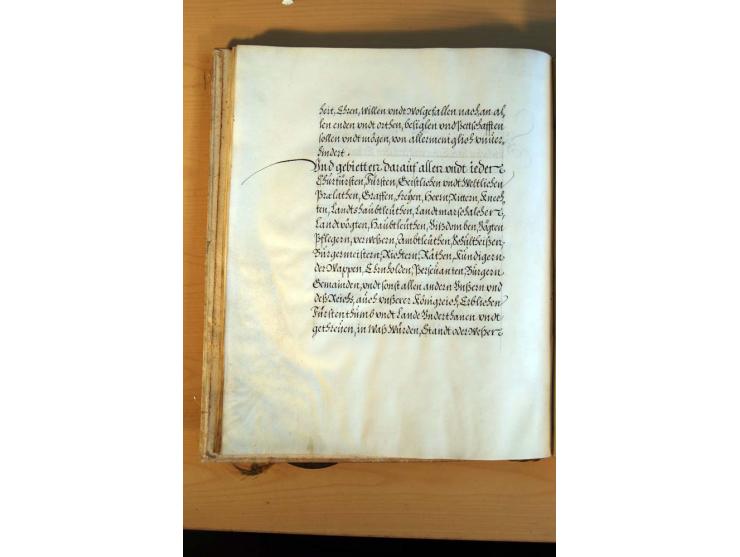 heit, Ehren, Willen vndt Wolgefallen nach an al-
len enden vndt orthen, besiglen vnd Pettschafften
sollen vndt mögen, von allermeniglich vnuer-
hindert.
Vnd gebietten darauf allen vndt ieden
Churfürsten, Fürsten, Geistlichen vndt Weltlichen
Prælathen, Graffen, Freyen, Herrn, Rittern, Knech-
ten, Landtshaubtleüthen, Landtmarschalchen,
Landtvögten, Haubtleüthen, Vitzdomben, Vögten
Pflegern, verwesern, Ambtleüthen, Schultheißen,
Bürgermeistern, Richtern, Räthen, Kündigern
der Wappen, Ehrnholden, Perseuanten, Bürgern
Gemainden, vndt sonst allen andern Vnßern vnd
deß Reichs, auch vnßerer Königreich, Erblichen
Fürstenthümb vndt Lande Vnderthanen vndt
getreüen, in Waß Würden, Standt oder Weßen